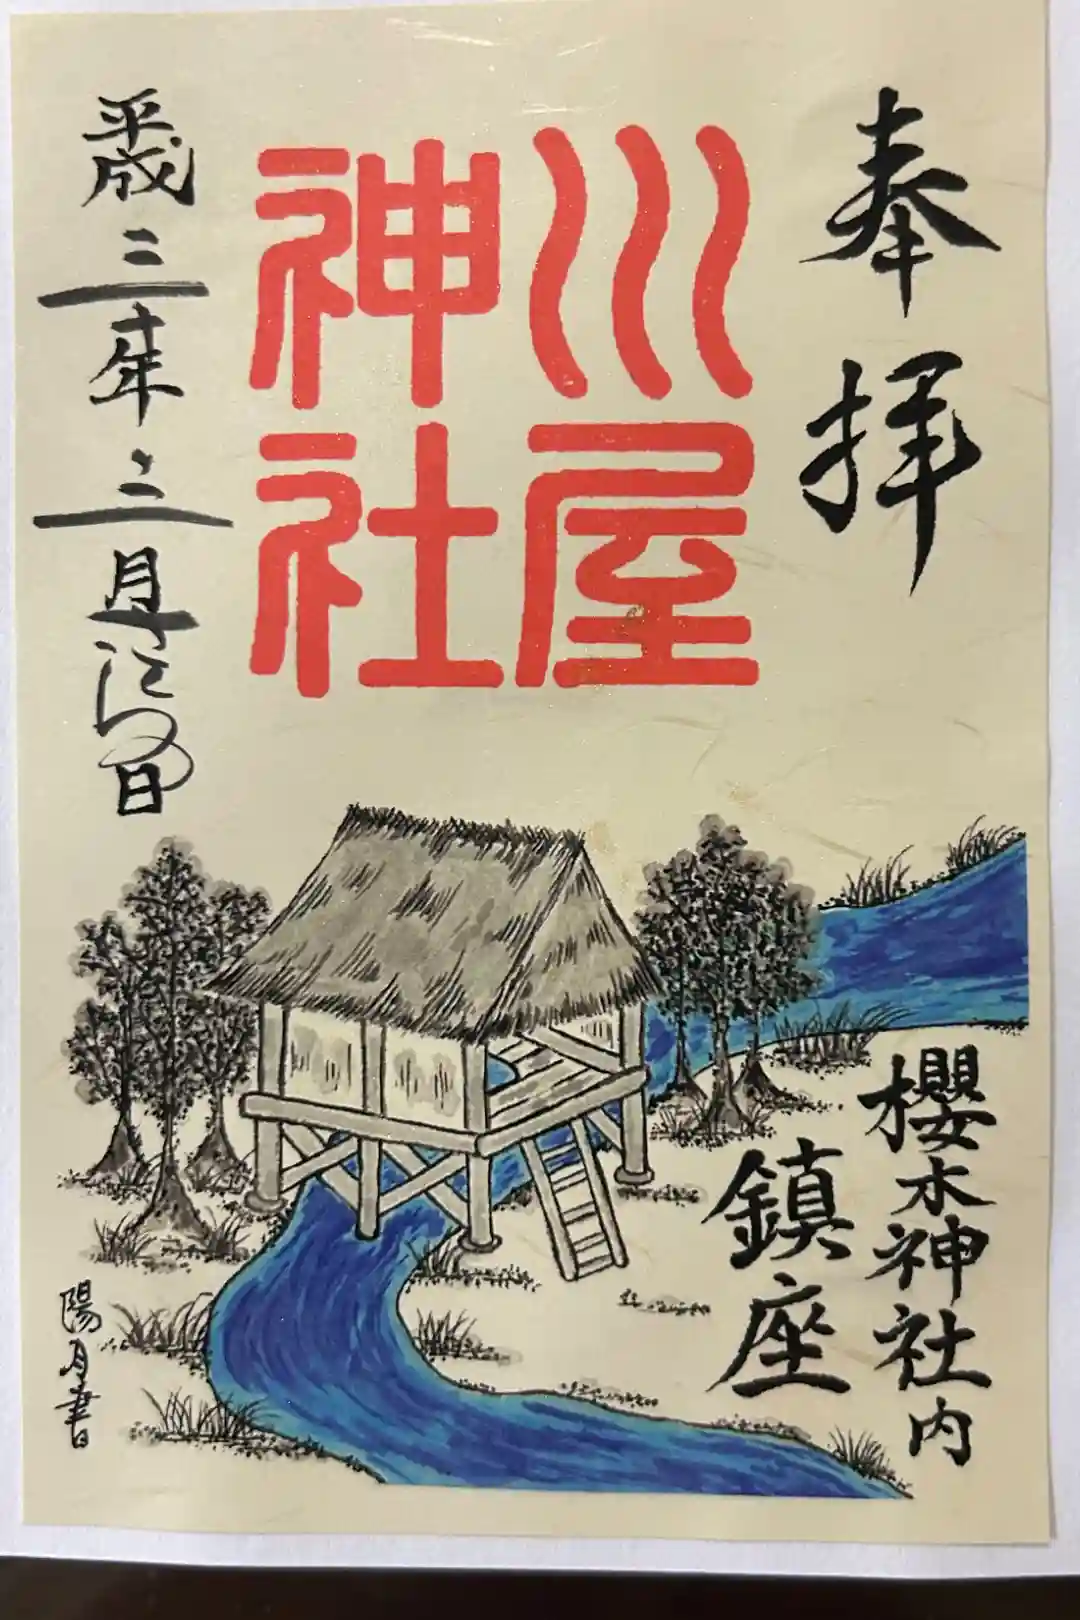 奉拝
川屋
神社
平成三十年三月日
櫻木神社内
鎮座
陽月書